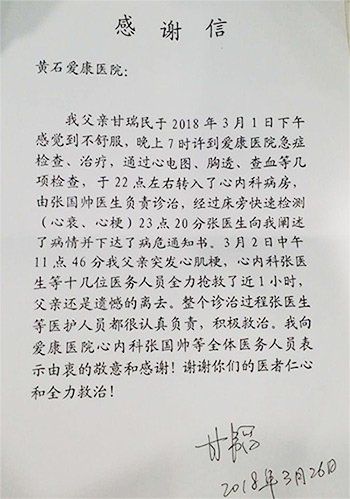 感谢信
黄石爱康医院：
我父亲甘瑞民于2018年3月1日下午
感觉到不舒服，晚上7时许到爱康医院急症
检查、治疗，通过心电图、胸透、查血等几
项检查，于22点左右转入了心内科病房，
由张国帅医生负责诊治，经过床旁快速检测
（心衰、心梗）23点20分张医生向我阐述
了病情并下达了病危通知书。3月2日中午
11点46分我父亲突发心肌梗，心内科张医
生等十几位医务人员全力抢救了近1小时，
父亲还是遗憾的离去。整个诊治过程张医生
等医护人员都很认真负责，积极救治。我向
爱康医院心内科张国帅等全体医务人员表
示由衷的敬意和感谢！谢谢你们的医者仁心
和全力救治！
甘
2018年3月26日